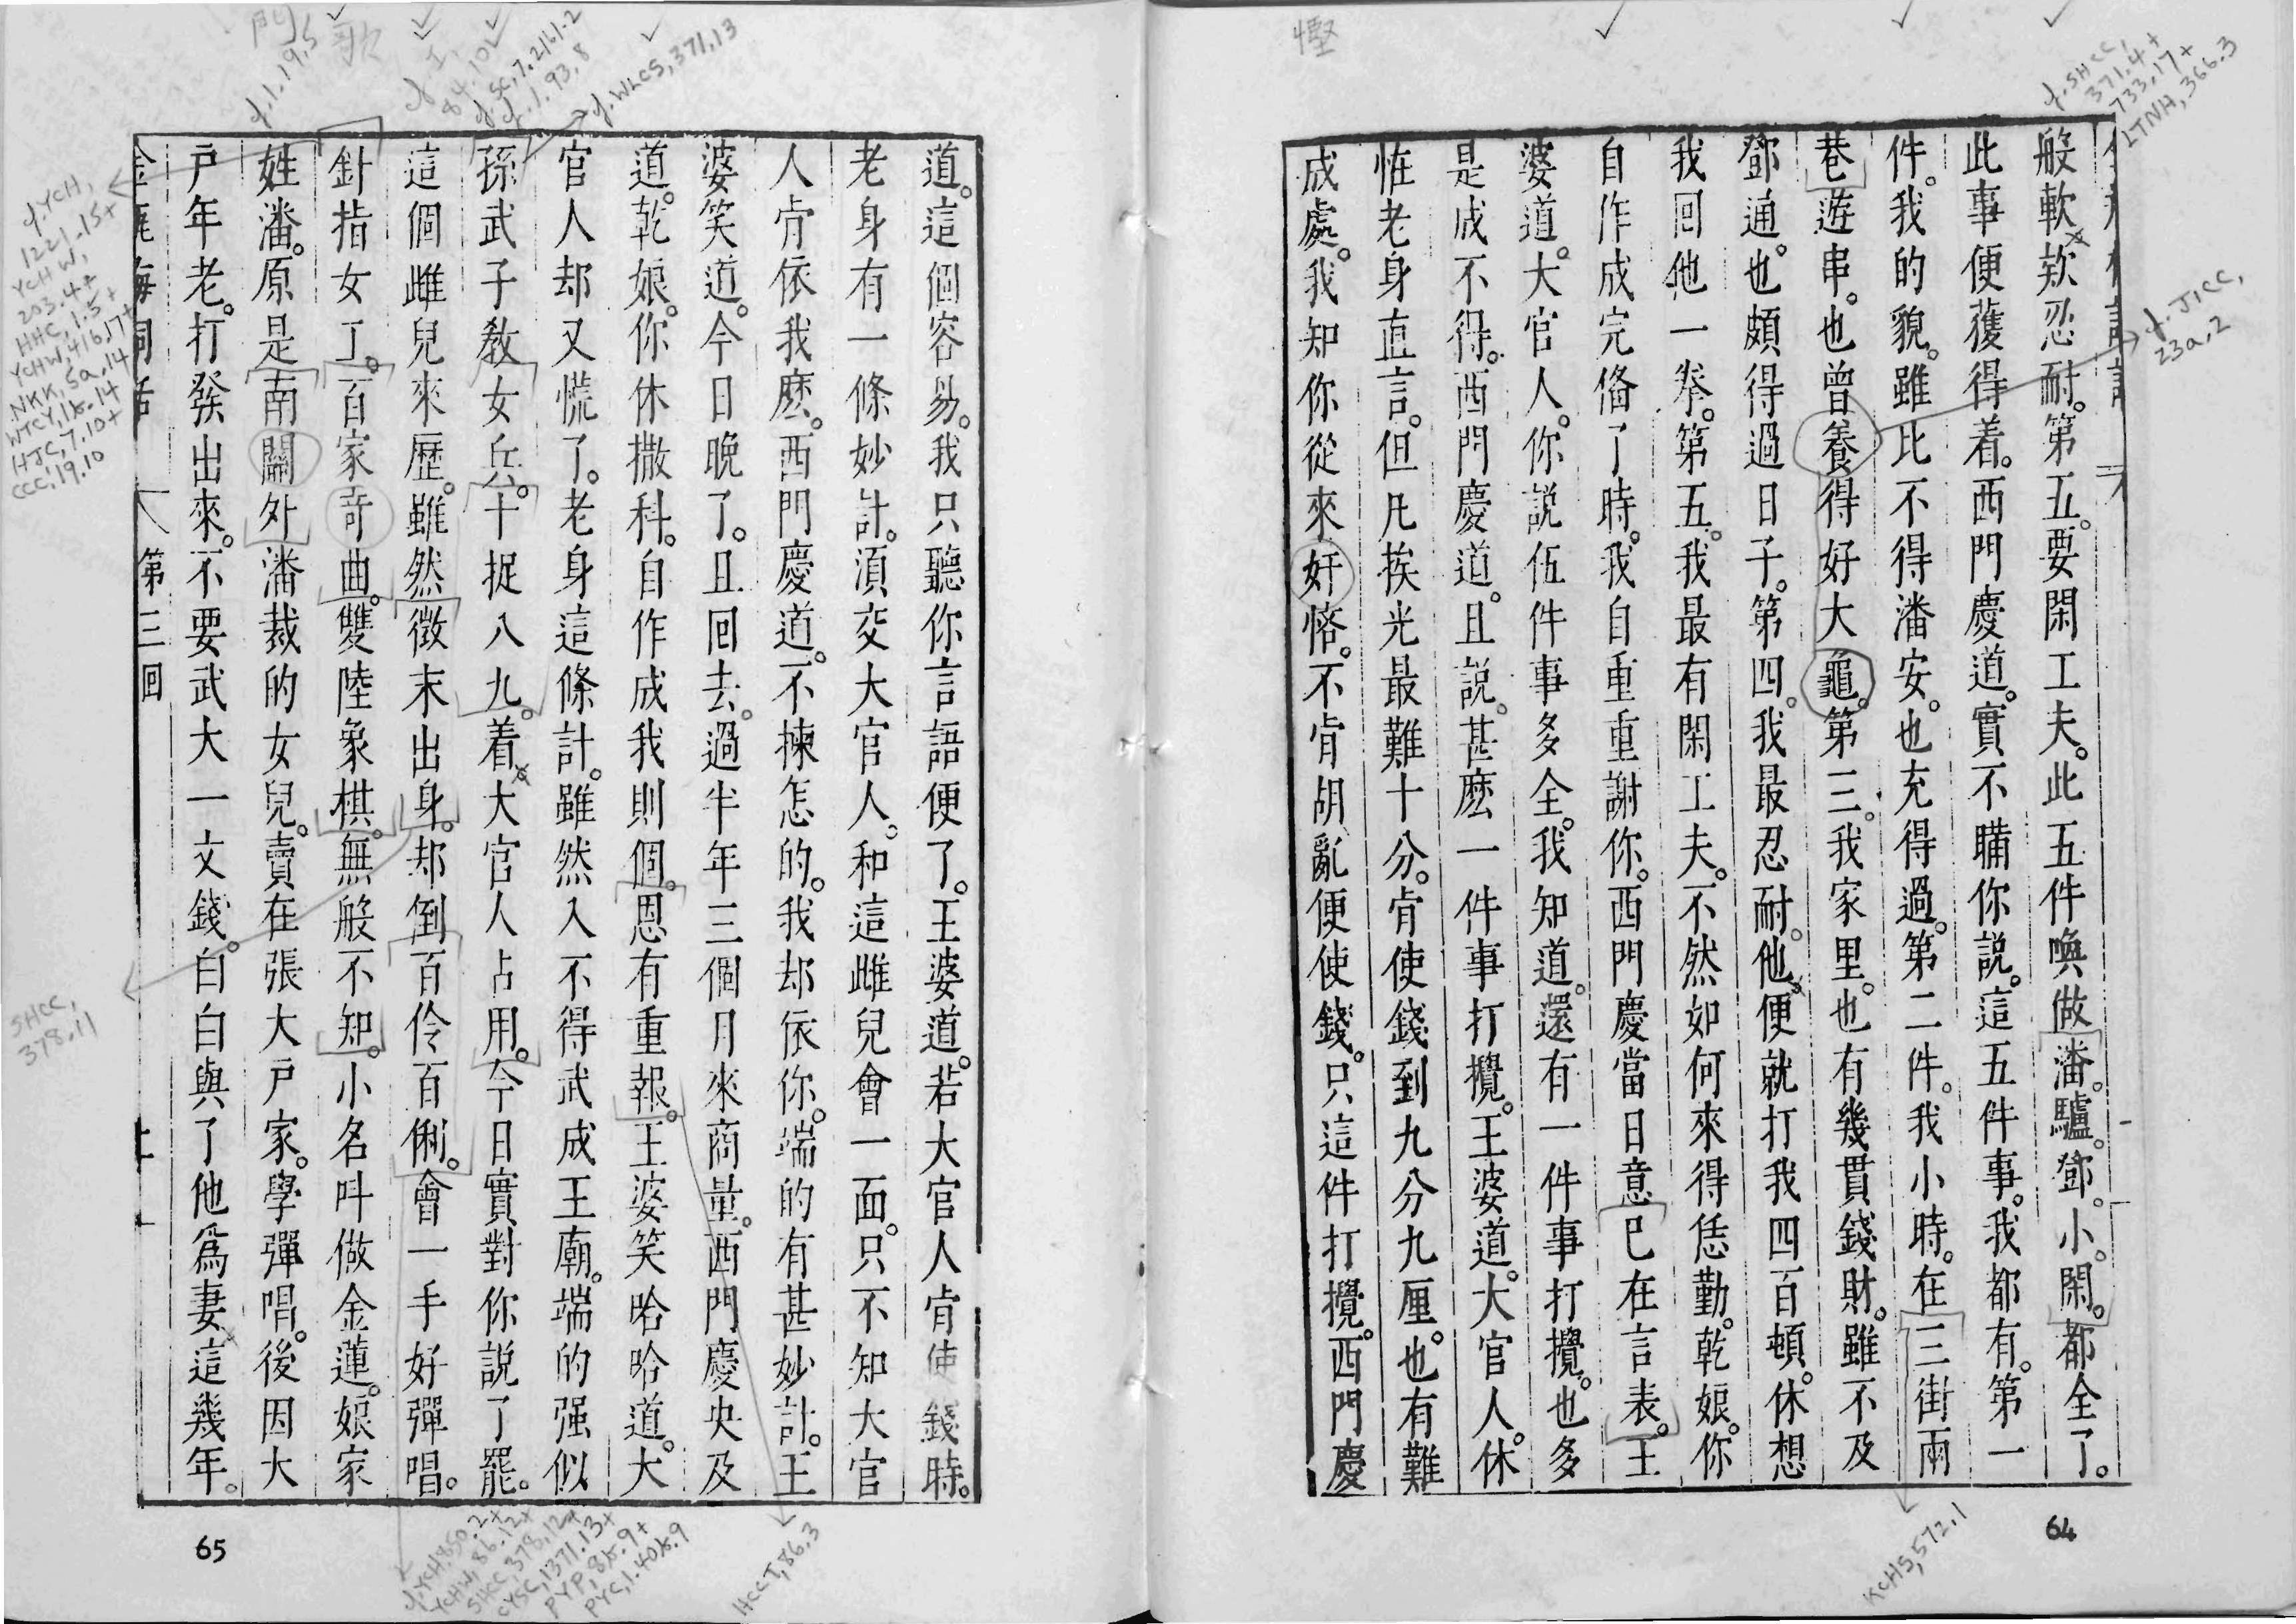 般軟欵忍耐。第五。要閑工夫。此五件喚做潘。驢。鄧。小。閑。都全了。
此事便獲得着。西門慶道。實不瞞你說。這五件事。我都有。第一
件。我的貌。雖比不得潘安。也充得過。第二件。我小時。在三街兩
巷遊串。也曾養得好大龜。第三。我家里。也有幾貫錢財。雖不及
鄧通。也頗得過日子。第四。我最忍耐。他便就打我四百頓。休想
我回他一拳。第五。我最有閑工夫。不然如何來得恁勤。乾娘。你
自作成完俻了時。我自重重謝你。西門慶當日意已在言表。王
婆道。大官人。你説伍件事多全。我知道。還有一件事打攪。也多
是成不得。西門慶道。且説。甚麽一件事打攪。王婆道。大官人。休
恠老身直言。但凡挨光最難十分。肯使錢到九分九厘。也有難
成處。我知你從來奸悋。不肯胡亂便使錢。只這件打攪。西門慶
64
道。這個容易。我只聽你言語便了。王婆道。若大官人肯使錢時。
老身有一條妙計。須交大官人。和這雌兒會一面。只不知大官
人肯依我麽。西門慶道。不揀怎的。我却依你。端的有甚妙計。王
婆笑道。今日晚了。且回去。過半年三個月來商量。西門慶央及
道。乾娘。你休撒科。自作成我則個。恩有重報。王婆笑哈哈道。大
官人却又慌了。老身這條計。雖然入不得武成王廟。端的强似
孫武子教女兵。十捉八九。着大官人占用。今日實對你説了罷。
這個雌兒來歷。雖然微末出身。却倒百伶百俐。會一手好彈唱。
針指女工。百家奇曲。雙陸象棋。無般不知。小名叫做金蓮。娘家
姓潘。原是南關外潘裁的女兒。賣在張大戶家。學彈唱。後因大
戶年老。打發出來。不要武大一文錢。白白與了他爲妻這幾年。
第三回
65
慳
cf. SHCC,
371.4+
733.17+
LTNH, 366.3
cf. JICC,
23a, 2
KCHS, 572.1
cf. 1.19.5
cf. WLCS, 371.13
cf. YCH,
1221.15+
YCHW,
203.4+
HHC, 1.5+
YCHW, 416.17+
NKK, 5a, 14
HJC, 7.10+
CCC, 19.10
SHCC,
378.11
cf. YCH, 850.2+
YCHW, 86.12+
SHCC, 378.12+
CYSC, 1371.13+
PYP, 8b.9+
PYC, 1.40b.9
HCCT, 86.3